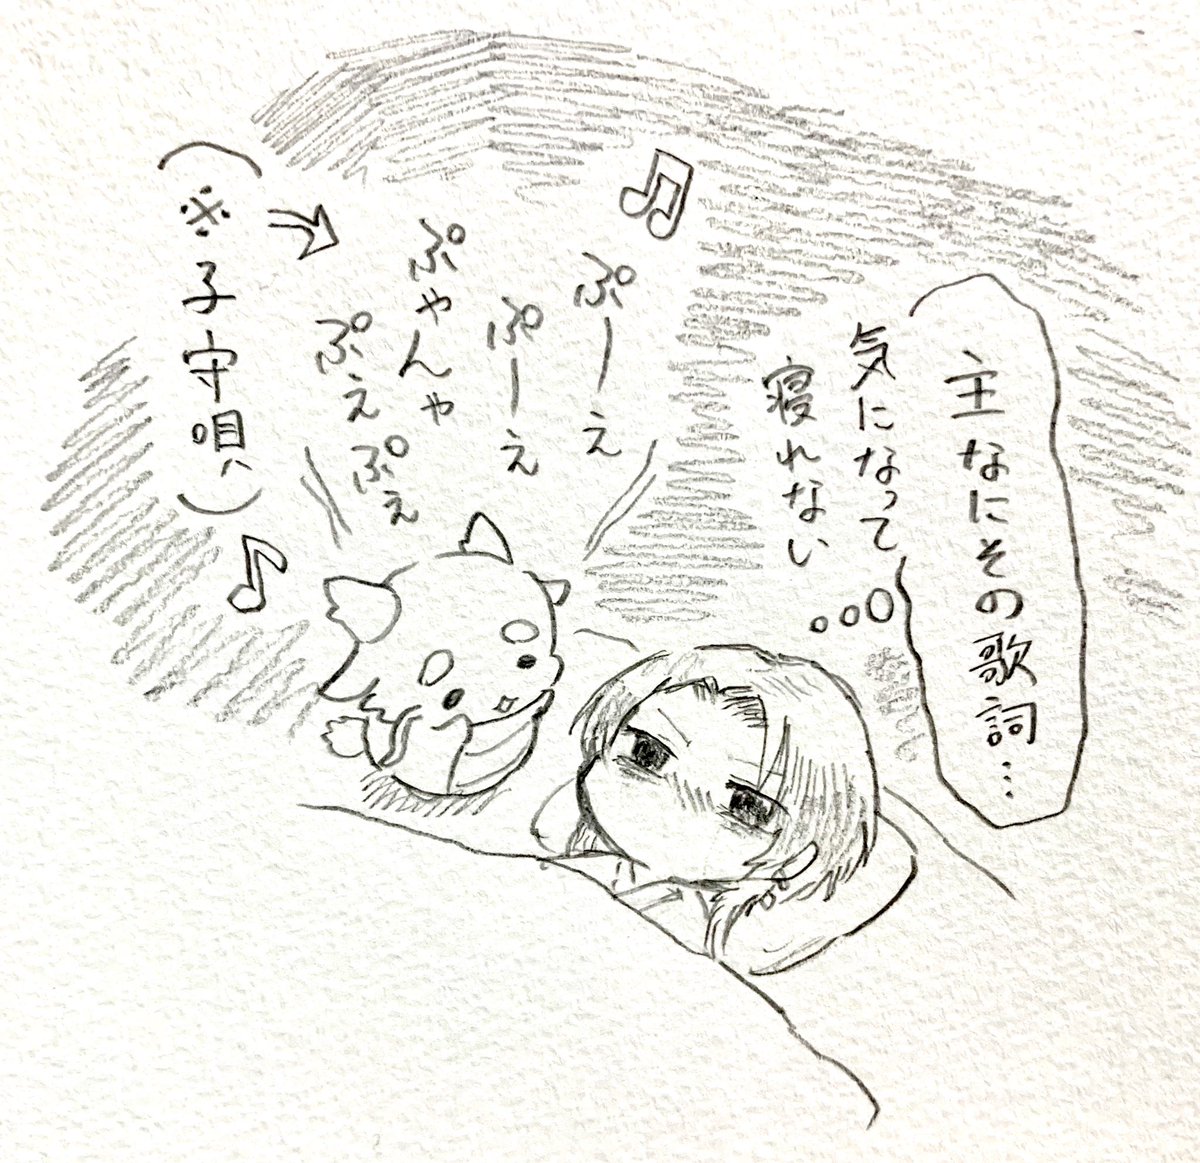 主なにその歌詞…
気になって
寝れない
ぷーえ
ぷーえ
ぷやんや
ぷえぷえ
(※子守唄)